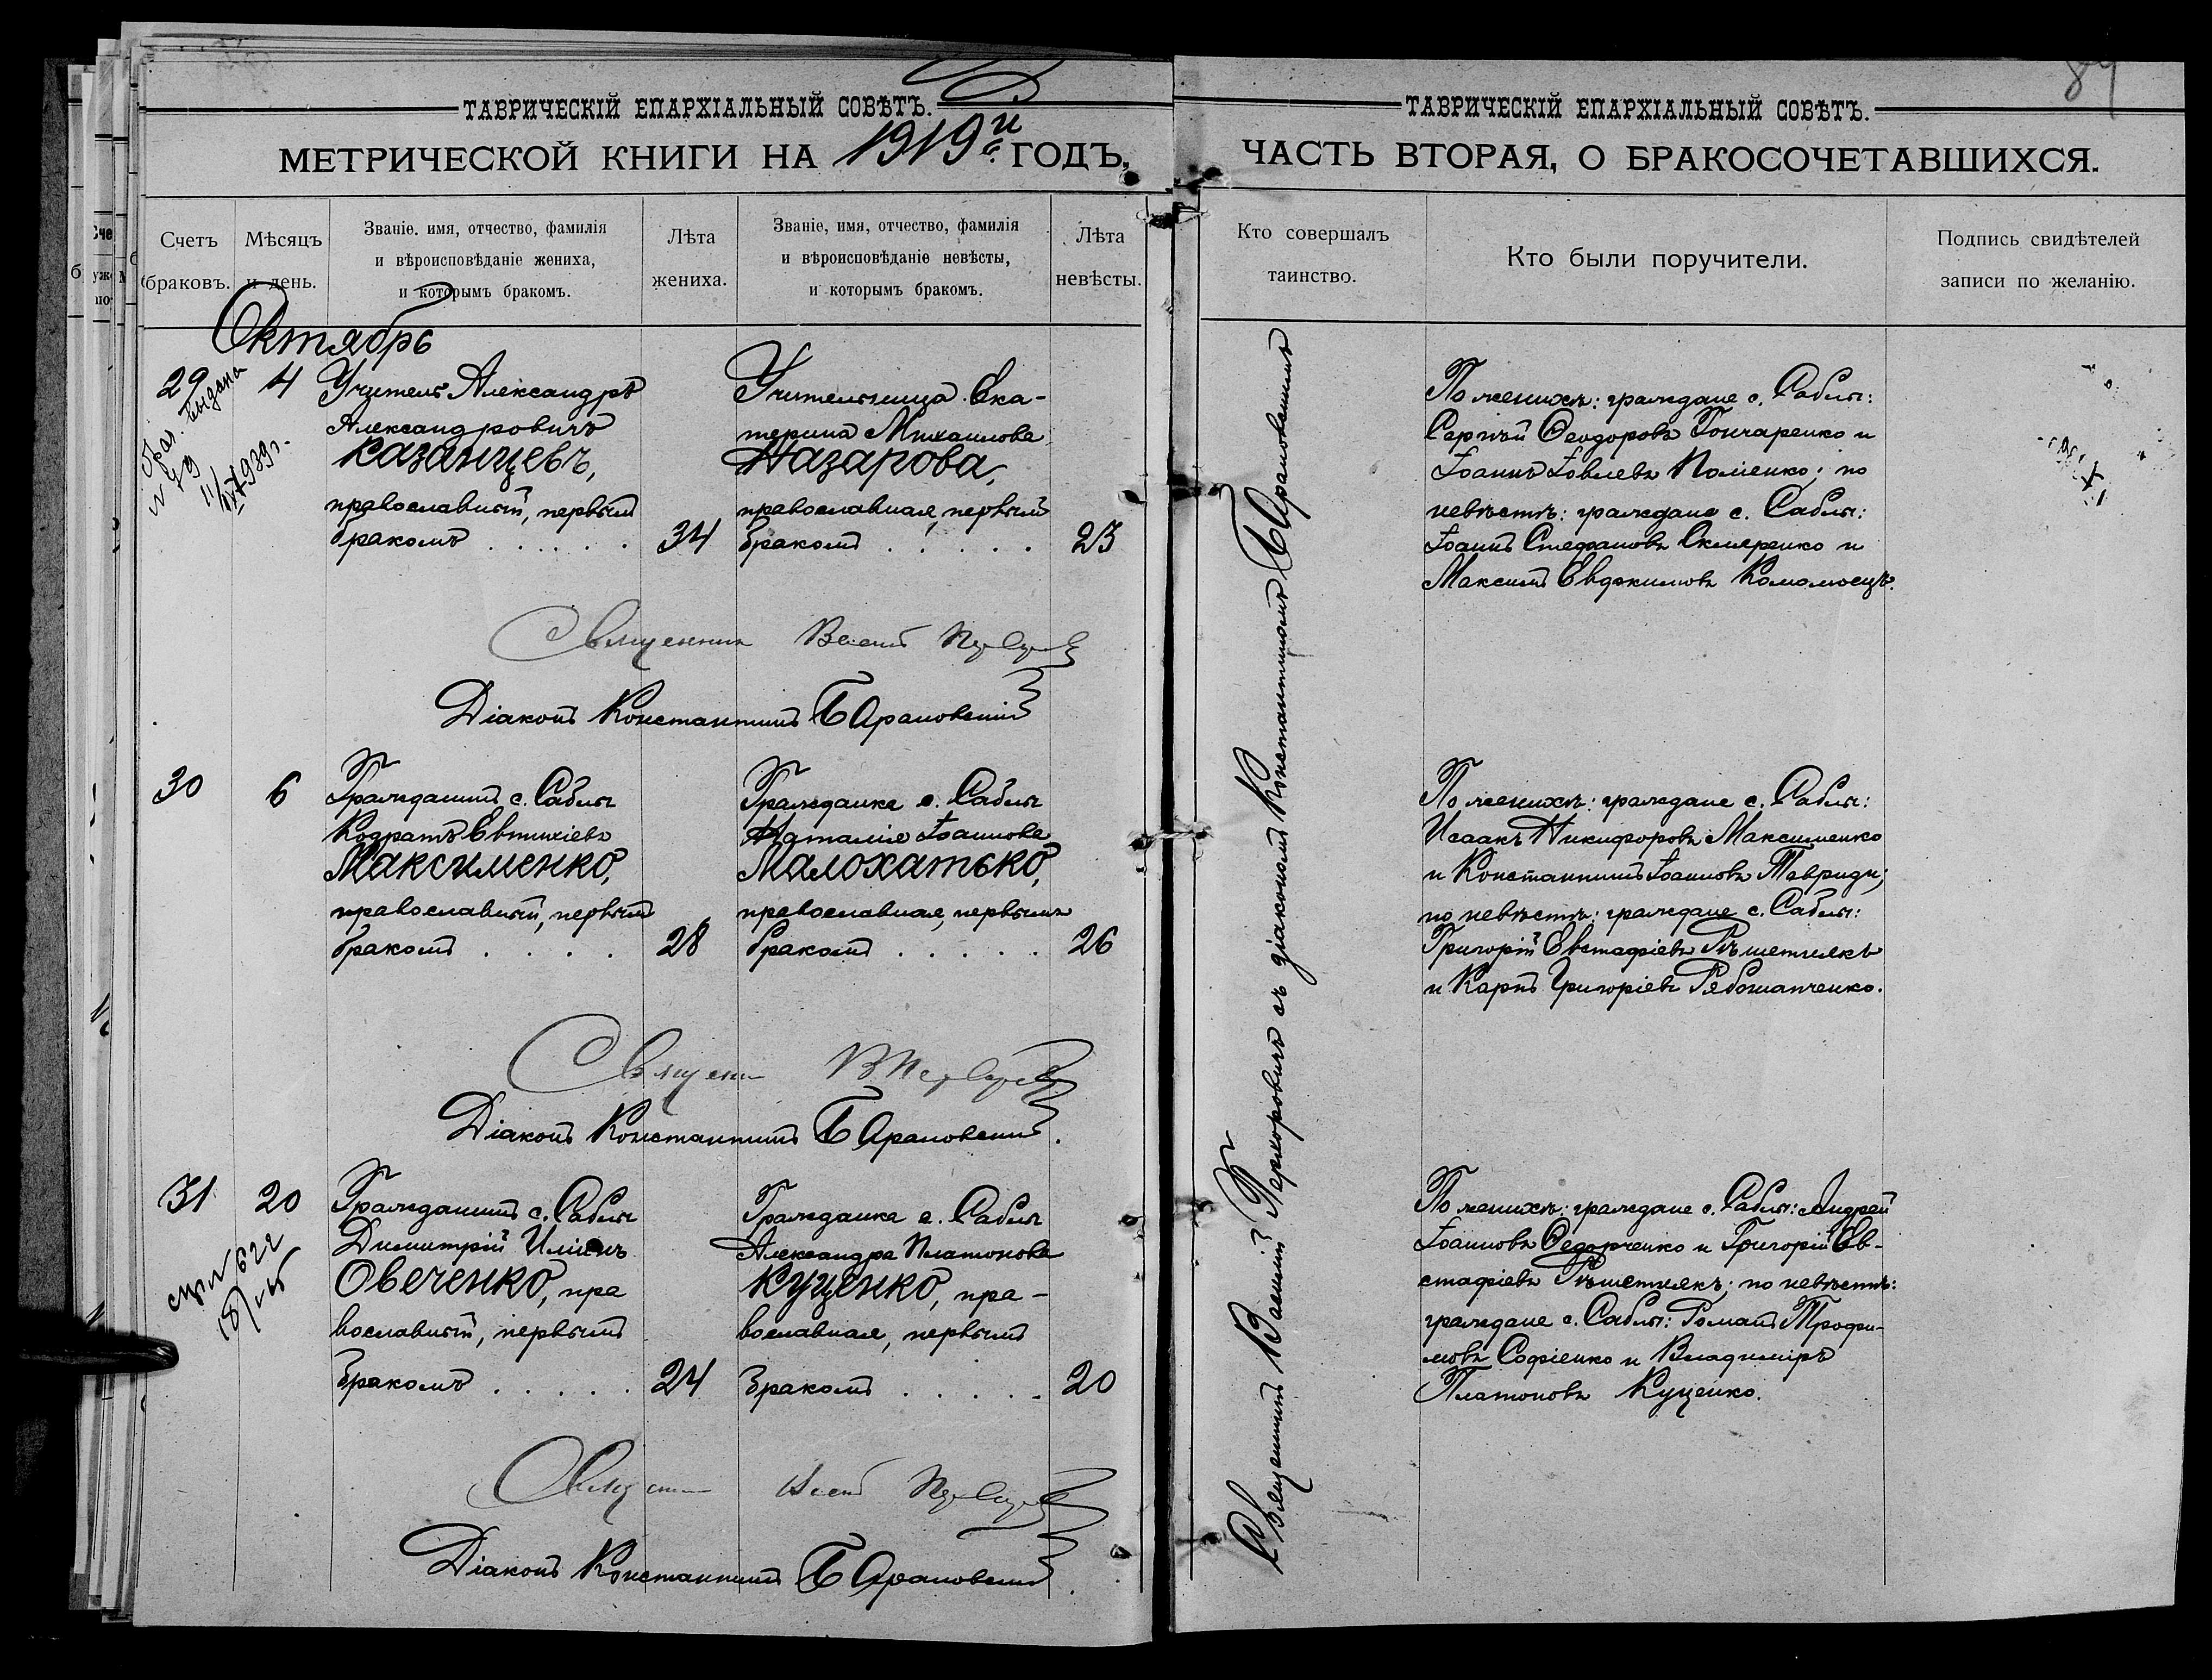 84
ТАВРИЧЕСКІЙ ЕПАРХІАЛЬНЫЙ СОВѢТЪ.
МЕТРИЧЕСКОЙ КНИГИ НА 1919й ГОДЪ,
Счетъ браковъ.
Мѣсяцъ и день.
Званіе, имя, отчество, фамилія
и вѣроисповѣданіе жениха,
и которымъ бракомъ.
Лѣта жениха.
Званіе, имя, отчество, фамилія
и вѣроисповѣданіе невѣсты,
и которымъ бракомъ.
Лѣта невѣсты.
Октябрь
29
4
выдана
Учитель Александръ
Александровичъ
Казанцевъ,
православный, первымъ
бракомъ . . . . . 34
Учительница Ека-
терина Михаилова
Назарова,
православная, первымъ
бракомъ . . . . . 23
Священникъ
Діаконъ Константинъ Барановскій
30
6
Гражданинъ с. Саблы
Кодратъ Евтихіевъ
Максименко,
православный, первымъ
бракомъ . . . . 28
Гражданка с. Саблы
Наталія Іоаннова
Малохатько,
православная, первымъ
бракомъ . . . . . 26
Священ
Діаконъ Константинъ Барановскій.
31
20
Гражданинъ с. Саблы
Димитрій Иліинъ
Овеченко, пра
вославный, первымъ
бракомъ . . . . . 24
Гражданка с. Саблы
Александра Платонова
Куценко, пра-
вославная, первымъ
бракомъ . . . . . 20
Діаконъ Константинъ Барановскій.
ТАВРИЧЕСКІЙ ЕПАРХІАЛЬНЫЙ СОВѢТЪ.
ЧАСТЬ ВТОРАЯ, О БРАКОСОЧЕТАВШИХСЯ.
Кто совершалъ
таинство.
Кто были поручители.
Подпись свидѣтелей
записи по желанію.
Священникъ Василій Перхоровичъ съ діакономъ Константиномъ Барановскимъ
По женихѣ: граждане с. Саблы:
Сергѣй Ѳеодоровъ Гончаренко и
Іоаннъ Іовлевъ Поліенко; по
невѣстѣ: граждане с. Саблы:
Іоаннъ Стефановъ Скляренко и
Максимъ Евдокимовъ Коломоецъ.
По женихѣ: граждане с. Саблы:
Исаакъ Никифоровъ Максименко
и Константинъ Іоанновъ Тавриди;
по невѣстѣ: граждане с. Саблы:
Григорій Евстафіевъ Рѣшетнякъ
и Карпъ Григоріевъ Рябошапченко.
По женихѣ: граждане с. Саблы: Андрей
Іоанновъ Ѳедорченко и Григорій Ев-
стафіевъ Рѣшетнякъ; по невѣстѣ:
граждане с. Саблы: Романъ Трофи-
мовъ Софіенко и Владиміръ
Платоновъ Куценко.